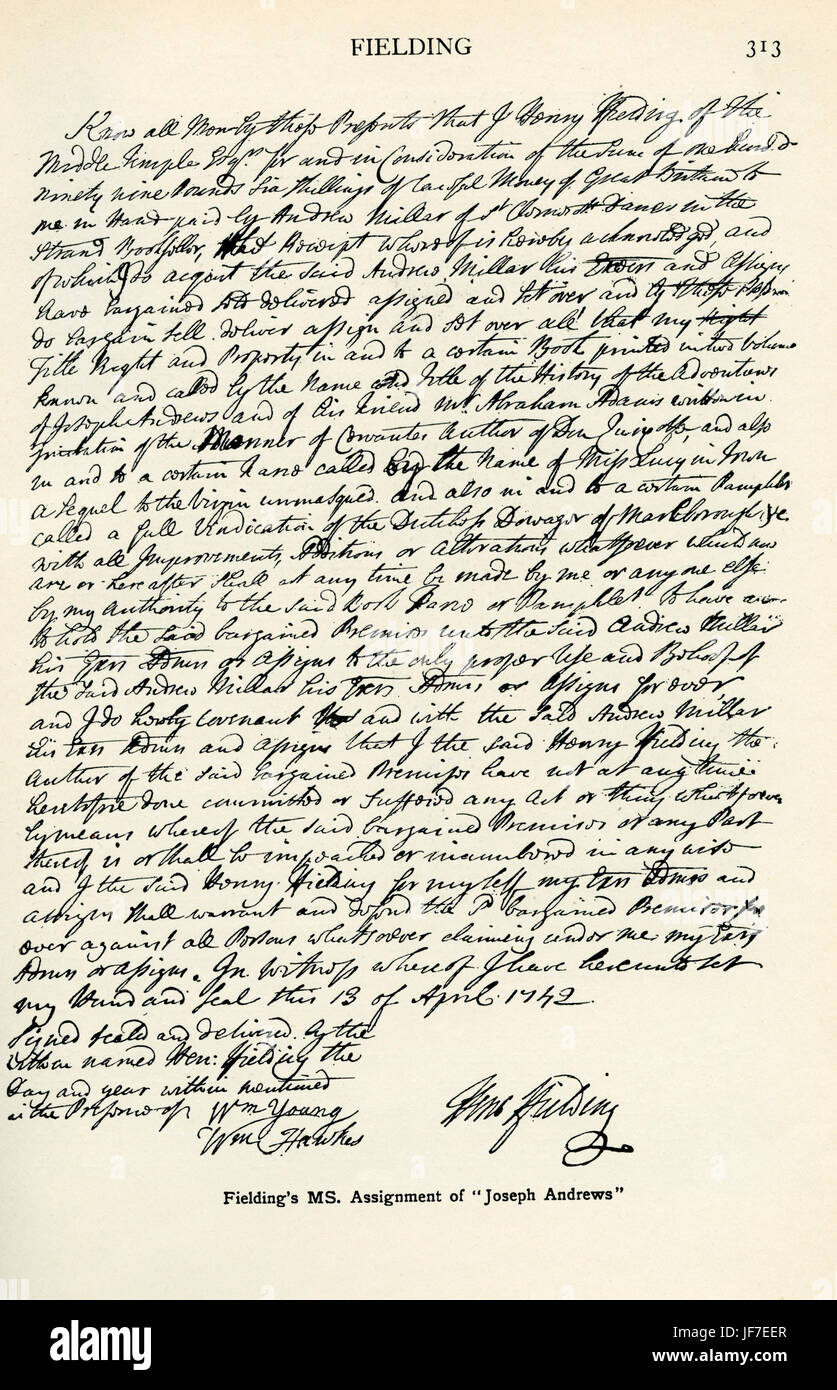 FIELDING 313
Know all Men by these Presents that I Henry Fielding of the
Middle Temple Esqr. for and in Consideration of the Sum of one hund.d
ninety nine Pounds six Shillings of lawful Money of Great Britain to
me in Hand paid by Andrew Millar of St Clement Danes in the
Strand Bookseller, the Receipt whereof is hereby acknowledged, and
of which I do acquit the said Andrew Millar his Exers and Assigns
have bargained sold delivered assigned and set over and by these
do bargain sell deliver assign and set over all that my Right
Title Right and Property in and to a certain Book printed in two Volumes
known and called by the Name and Title of the History of the Adventures
of Joseph Andrews and of his Friend Mr. Abraham Adams written in
Imitation of the Manner of Cervantes Author of Don Quixotte, and also
in and to a certain Farce called by the Name of Miss Lucy in Town
a Sequel to the Virgin unmasqued and also in and to a certain Pamphlet
called a full Vindication of the Dutchess Dowager of Marlborough &c
with all Improvements, Additions or Alterations whatsoever which now
are or hereafter shall at any time be made by me or any one else
by my Authority to the said Book Farce or Pamphlet To have and
to hold the said bargained Premises unto the said Andrew Millar
his Exrs Admrs or Assigns to the only proper Use and Behoof of
the said Andrew Millar his Exers Admrs or Assigns for ever
and I do hereby covenant to and with the said Andrew Millar
his Exrs Admrs and Assigns that I the said Henry Fielding the
Author of the said bargained Premises have not at any time
heretofore done committed or suffered any Act or thing whatsoever
by means whereof the said bargained Premises or any Part
thereof is or shall be impeached or incumbered in any wise
and I the said Henry Fielding for myself my Exrs Admrs and
Assigns shall warrant and defend the sd bargained Premises for
ever against all Persons whatsoever claiming under me my Exrs
Admrs or Assigns. In witness whereof I have hereunto set
my Hand and Seal this 13 of April 1742.
Signed sealed and delivered by the
within named Hen: Fielding the
Day and year within mentioned
in the Presence of Wm Young
Wm Hawkes
Hen Fielding
Fielding's MS. Assignment of "Joseph Andrews"
alamy
Image ID: JF7EER
www.alamy.com